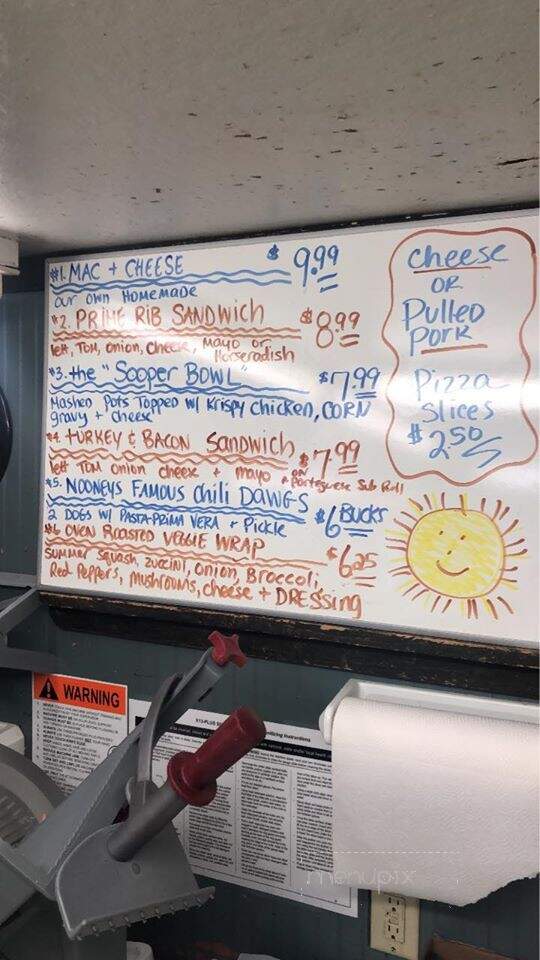 #1. MAC + CHEESE $ 9.99
our own HOMEMADE
#2. PRIME RIB SANDWICH $8.99
lett, TOM, onion, cheese, mayo or
Horseradish
#3. the "Sooper BOWL" $7.99
Mashed Pots Topped w/ Krispy chicken, CORN
gravy + cheese
#4. tURKEY & BACON Sandwich $7.99
lett TOM onion cheese + mayo on Portuguese Sub Roll
#5. NOONEYS FAMOUS Chili DAWGS $6 BUCKS
2 DOGS W/ PASTA-PRIMA VERA + Pickle
#6 OVEN ROASTED VEGGIE WRAP $6.25
SUMMER SQUASH, zuccini, onion, Broccoli,
Red Peppers, mushrooms, cheese + DRESSing
cheese
OR
Pulled
Pork
Pizza
Slices
$2.50
WARNING
menupix